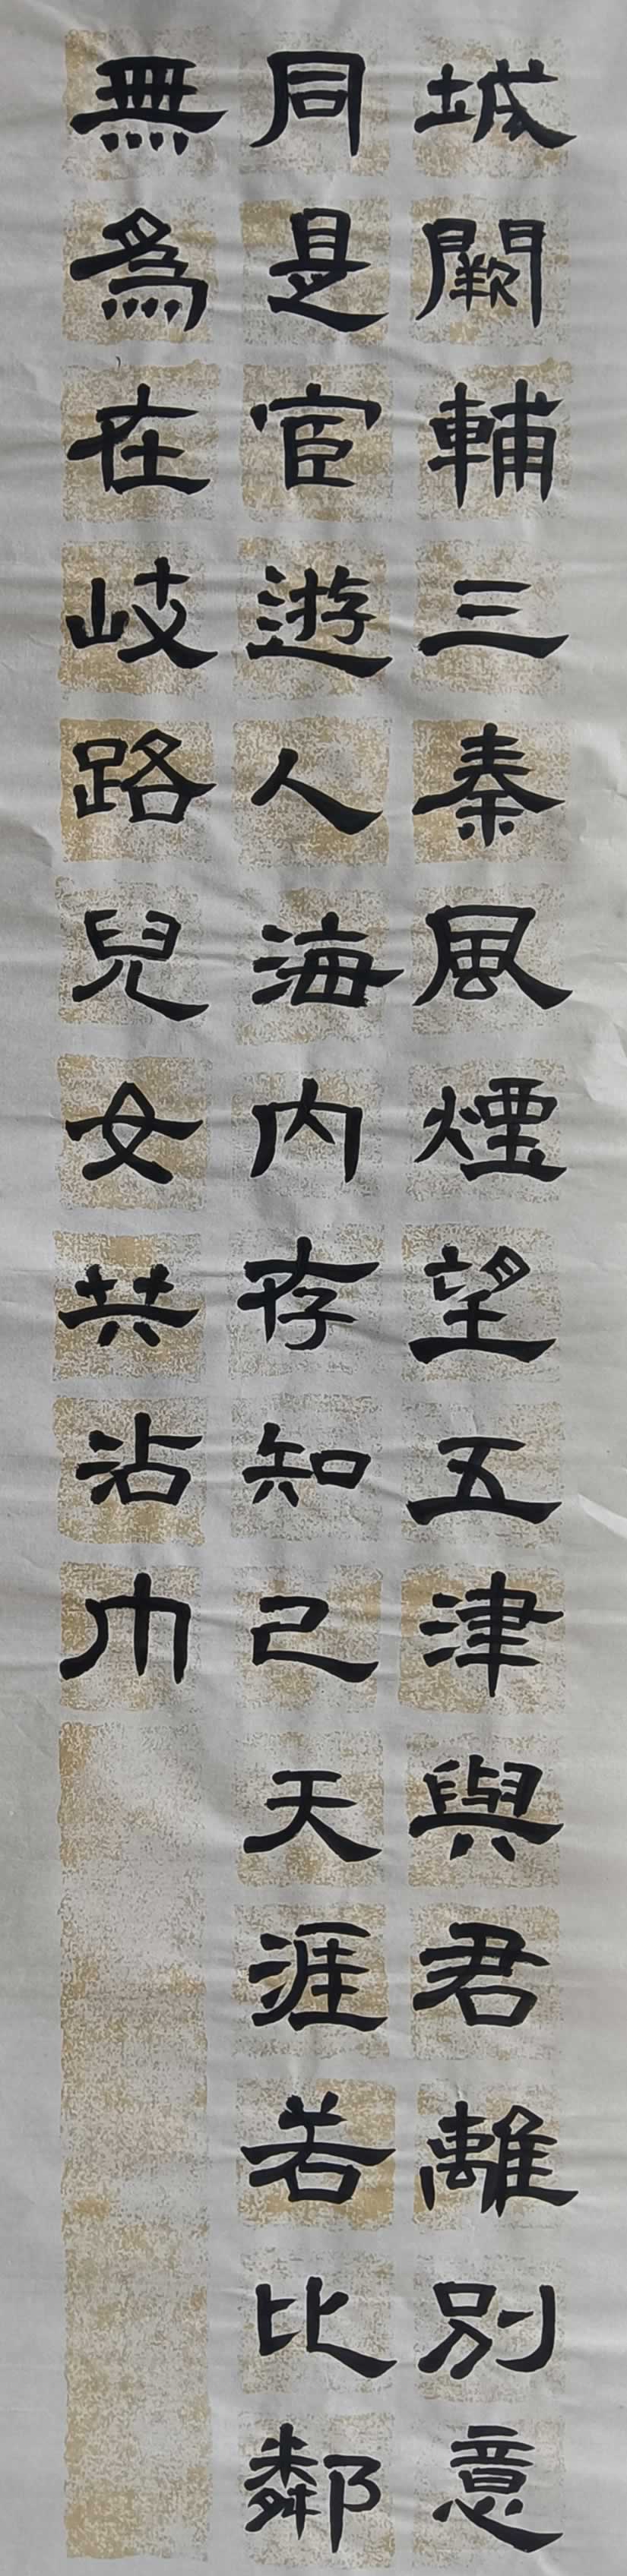 城闕輔三秦風煙望五津與君離別意
同是宦遊人海内存知己天涯若比鄰
無為在岐路兒女共沾巾